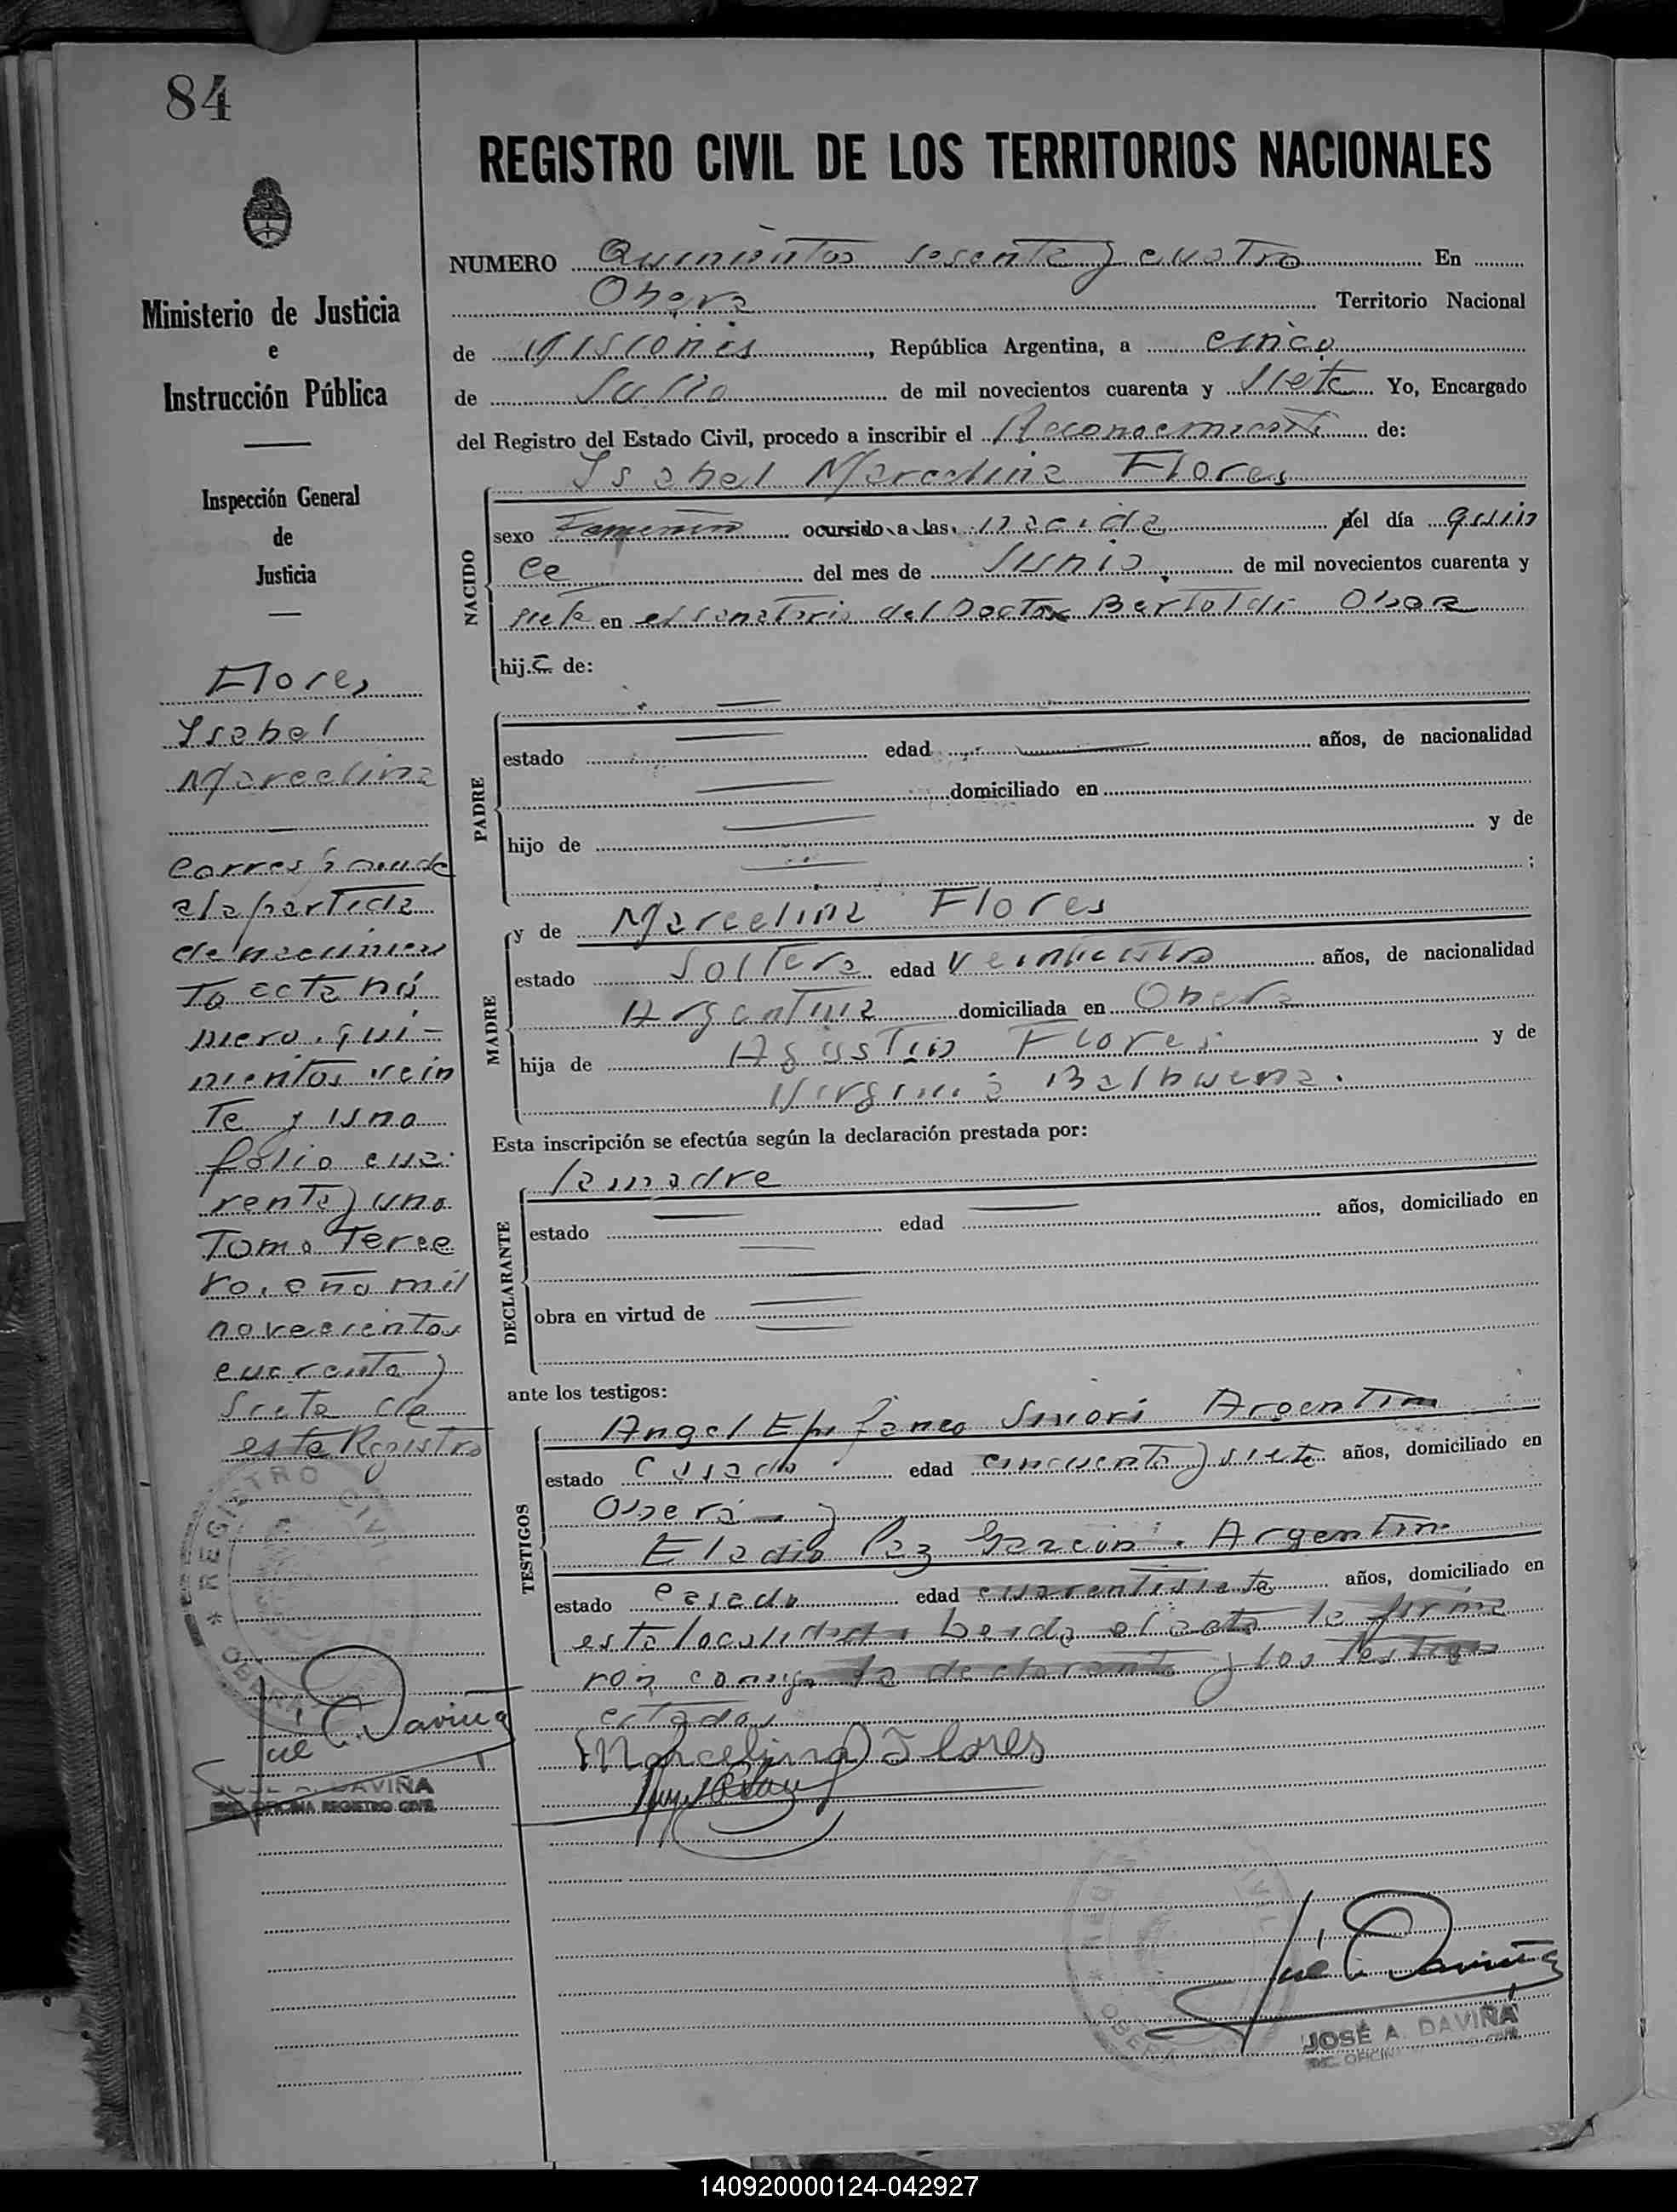 84
REGISTRO CIVIL DE LOS TERRITORIOS NACIONALES
Ministerio de Justicia
e
Instrucción Pública
Inspección General
de
Justicia
Flores
Isabel
Marcelina
Corresponde
a la partida
de nacimien
to acta nú
mero qui=
nientos vein
te y uno
folio cua
renta y uno
Tomo Terce
ro, año mil
novecientos
cuarenta y
siete de
este Registro
REGISTRO CIVIL
OBERA
José A. Daviña
JOSE A. DAVIÑA
OFICINA REGISTRO CIVIL
NUMERO Quinientos sesenta y cuatro En
Obera Territorio Nacional
de Misiones, República Argentina, a cinco
de Julio de mil novecientos cuarenta y Siete Yo, Encargado
del Registro del Estado Civil, procedo a inscribir el Reconocimiento de:
Isabel Marcelina Flores
NACIDO
sexo Femenino ocurrido a las nacida del día quin
ce del mes de Junio de mil novecientos cuarenta y
siete en el sanatorio del Doctor Bertoldi Obera
hija de:
PADRE
estado edad años, de nacionalidad
domiciliado en
hijo de y de
;
MADRE
y de Marcelina Flores
estado Soltera edad años, de nacionalidad
Argentina domiciliada en Obera
hija de Agustin Flores y de
Virginia Balbuena.
Esta inscripción se efectúa según la declaración prestada por:
la madre
DECLARANTE
estado edad años, domiciliado en
obra en virtud de
ante los testigos:
TESTIGOS
Angel Epifaneo Argentin
estado Casado edad cincuenta y siete años, domiciliado en
Oberá y
Eladio Paz Garzón. Argentin
estado casado edad cuarentisiete años, domiciliado en
esta localidad. Leida el acta la firma
ron conmigo la declarante y los testigos
citados
Marcelina Flores
José A. Daviña
REGISTRO CIVIL
OBERA
JOSÉ A. DAVIÑA
OFICINA
140920000124-042927